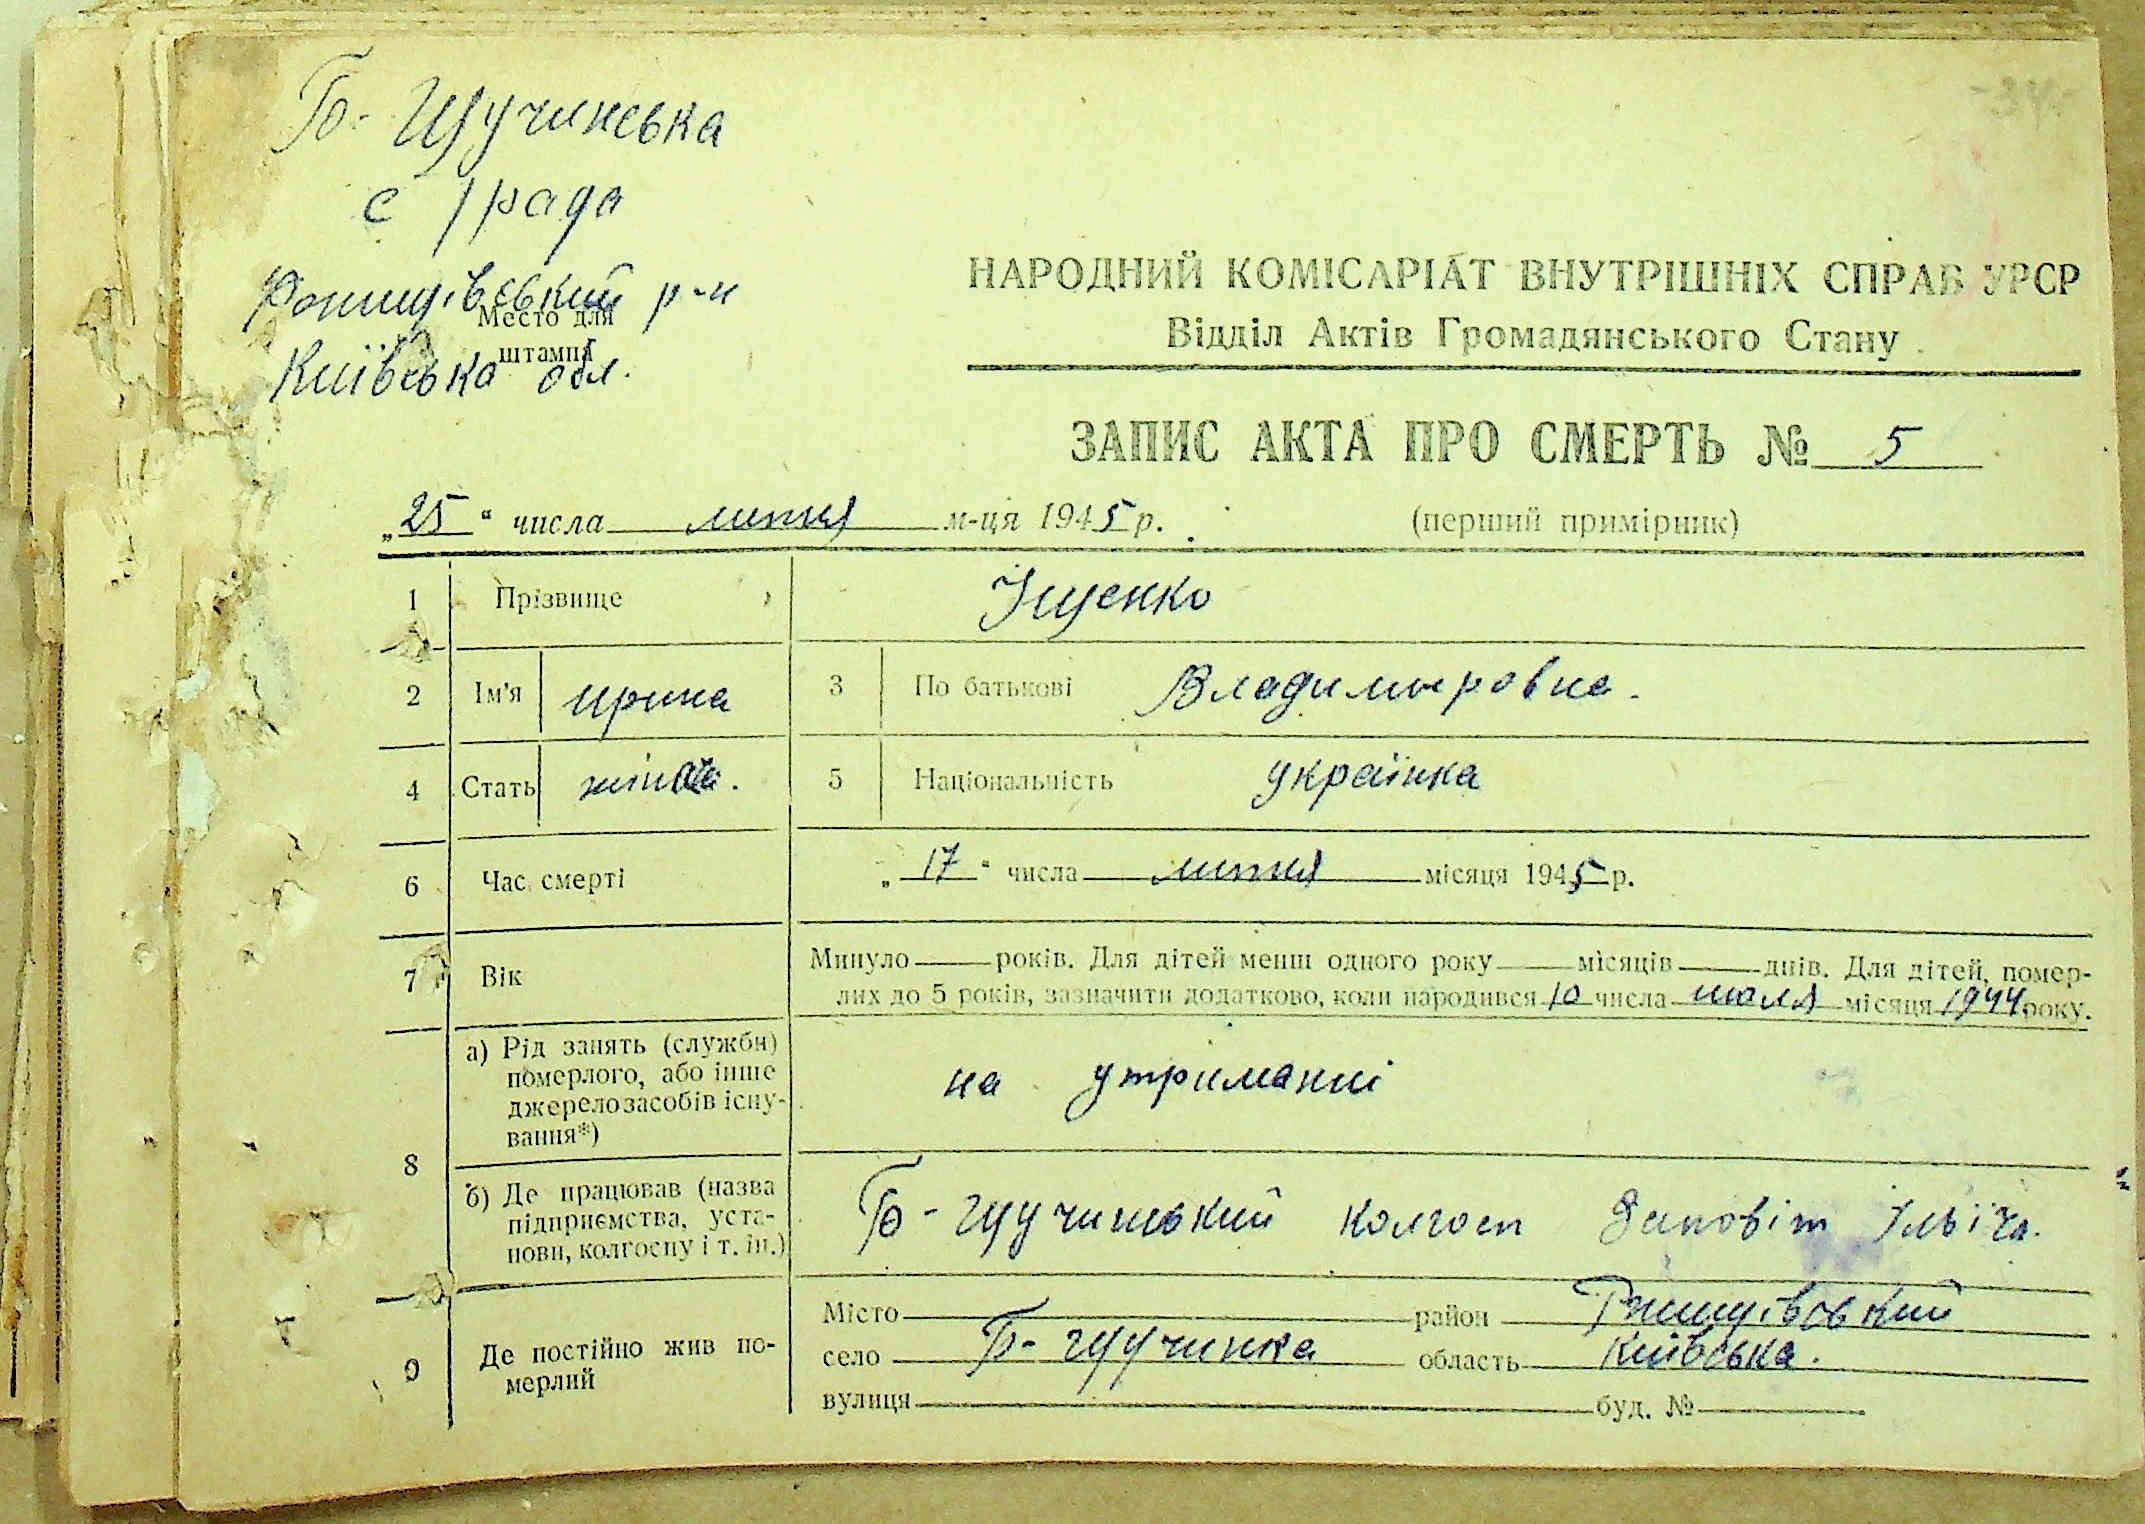 Б-Щучинська
с/рада
Ржищівський р-н
Место для
штампа
Київська обл.
НАРОДНИЙ КОМІСАРІАТ ВНУТРІШНІХ СПРАВ УРСР
Відділ Актів Громадянського Стану
ЗАПИС АКТА ПРО СМЕРТЬ № 5
„25“ числа липня м-ця 1945 р. (перший примірник)
1 Прізвище Іщенко
2 Ім'я Ирина 3 По батькові Владимировна.
4 Стать жіноча. 5 Національність українка
6 Час смерті „17“ числа липня місяця 1945 р.
7 Вік Минуло років. Для дітей менш одного року місяців днів. Для дітей, помер-
лих до 5 років, зазначити додатково, коли народився 10 числа июля місяця 1944 року.
8 а) Рід занять (служби)
померлого, або інше
джерело засобів існу-
вання*)
на утриманні
б) Де працював (назва
підприємства, уста-
нови, колгоспу і т. ін.)
Б-Щучинський колгосп Заповіт Ілліча.
9 Де постійно жив по-
мерлий
Місто район Ржищівський
село Б-Щучинка область Київська.
вулиця буд. №